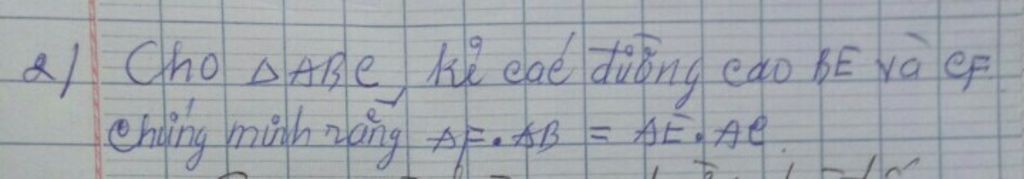 2/ Cho ΔABC, kẻ các đường cao BE và CF
chứng minh rằng AF.AB = AE.AC.